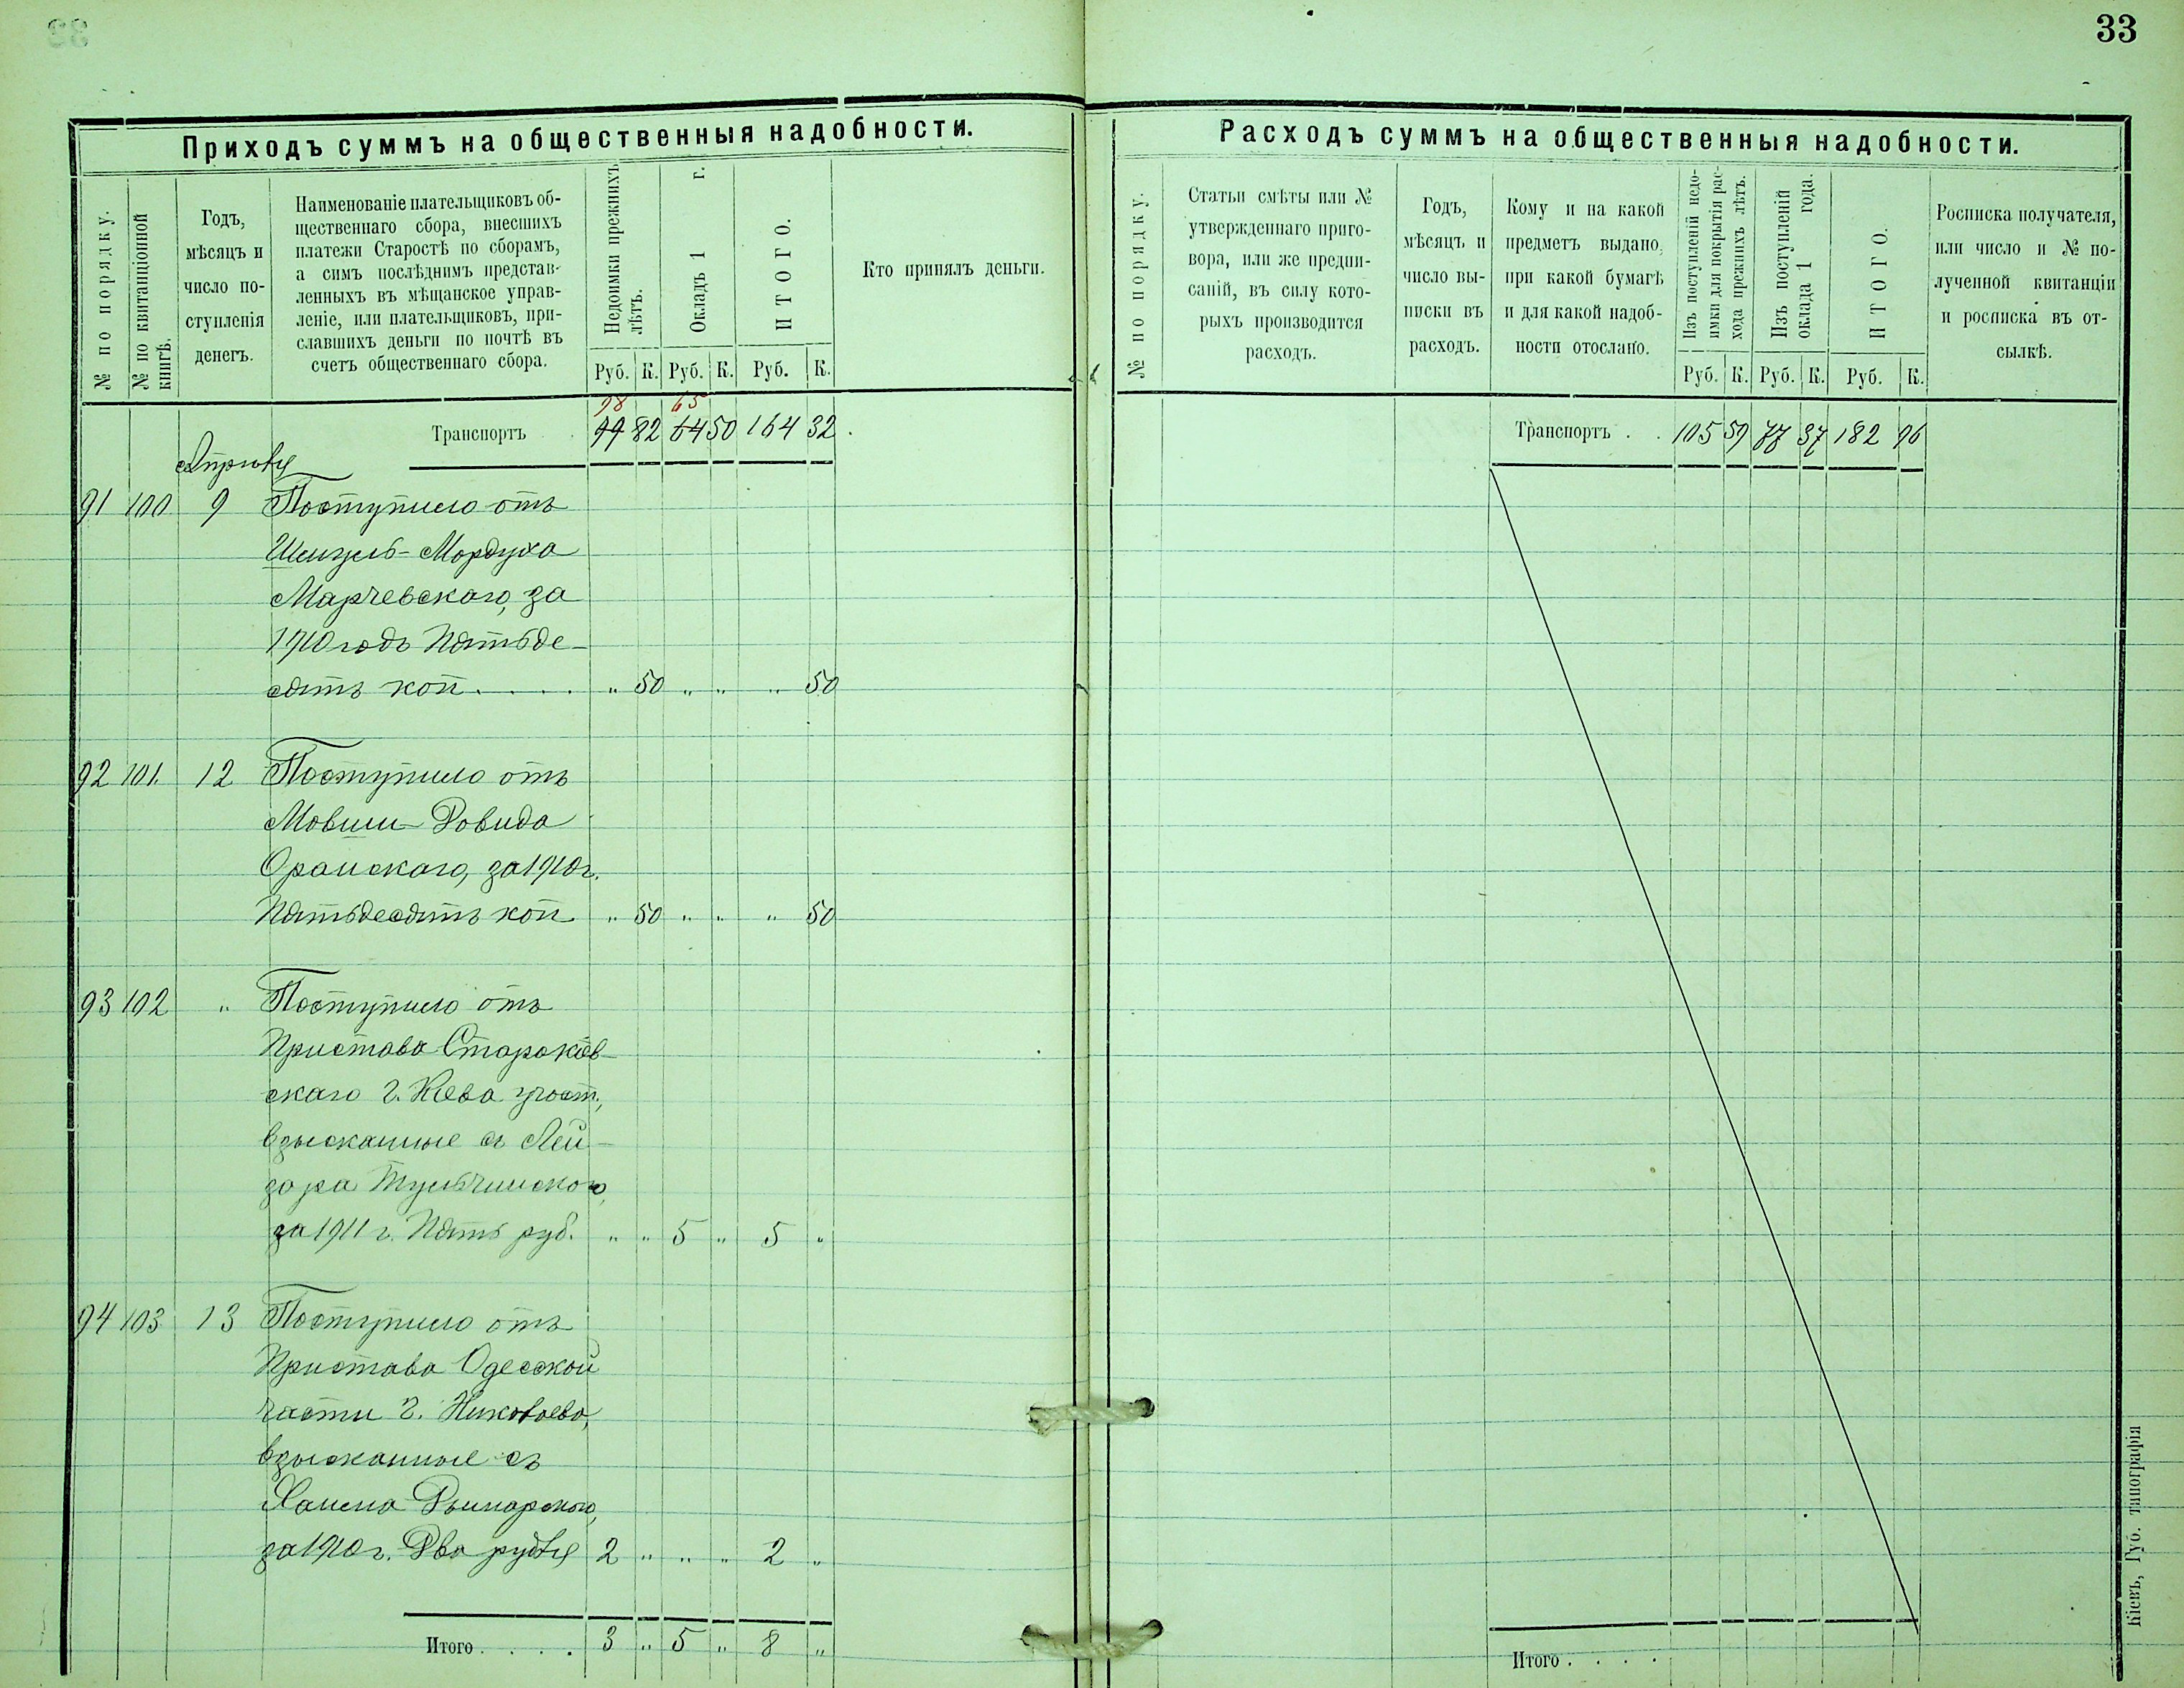 33
Приходъ суммъ на общественныя надобности.
№ по порядку.
№ по квитанціонной
книгѣ.
Годъ,
мѣсяцъ и
число по-
ступленія
денегъ.
Наименованіе плательщиковъ об-
щественнаго сбора, внесшихъ
платежи Старостѣ по сборамъ,
а симъ послѣднимъ представ-
ленныхъ въ мѣщанское управ-
леніе, или плательщиковъ, при-
славшихъ деньги по почтѣ въ
счетъ общественнаго сбора.
Недоимки прежнихъ
лѣтъ.
Окладъ 1 г.
ИТОГО.
Руб. К. Руб. К. Руб. К.
Кто принялъ деньги.
98 65
Транспортъ 99 82 64 50 164 32
Апрѣля
91 100 9 Поступило отъ
Шмуль-Мордуха
Марчевскаго, за
1910 годъ Пятьде-
сятъ коп. . . . „ 50 „ „ „ 50
92 101. 12 Поступило отъ
Мовши-Довида
за 1910 г.
Пятьдесятъ коп. „ 50 „ „ „ 50
93 102 „ Поступило отъ
Пристава Старокіев-
скаго г. Кіева участ.,
взысканные съ Лей-
зора Тульчинскаго,
за 1911 г. Пять руб. „ „ 5 „ 5 „
94 103 13 Поступило отъ
Пристава Одесской
части г. Николаева,
взысканные съ
Хаима Рымарскаго,
за 1910 г. Два рубля 2 „ „ „ 2 „
Итого . . . . 3 „ 5 „ 8 „
33
Расходъ суммъ на общественныя надобности.
№ по порядку.
Статьи смѣты или №
утвержденнаго приго-
вора, или же предпи-
саній, въ силу кото-
рыхъ производится
расходъ.
Годъ,
мѣсяцъ и
число вы-
писки въ
расходъ.
Кому и на какой
предметъ выдано,
при какой бумагѣ
и для какой надоб-
ности отослано.
Изъ поступленій недо-
имки для покрытія рас-
хода прежнихъ лѣтъ.
Изъ поступленій
оклада 1 года.
ИТОГО.
Руб. К. Руб. К. Руб. К.
Росписка получателя,
или число и № по-
лученной квитанціи
и росписка въ от-
сылкѣ.
Транспортъ . . 105 59 77 37 182 96
Итого . . . .
Кіевъ, Губ. типографія